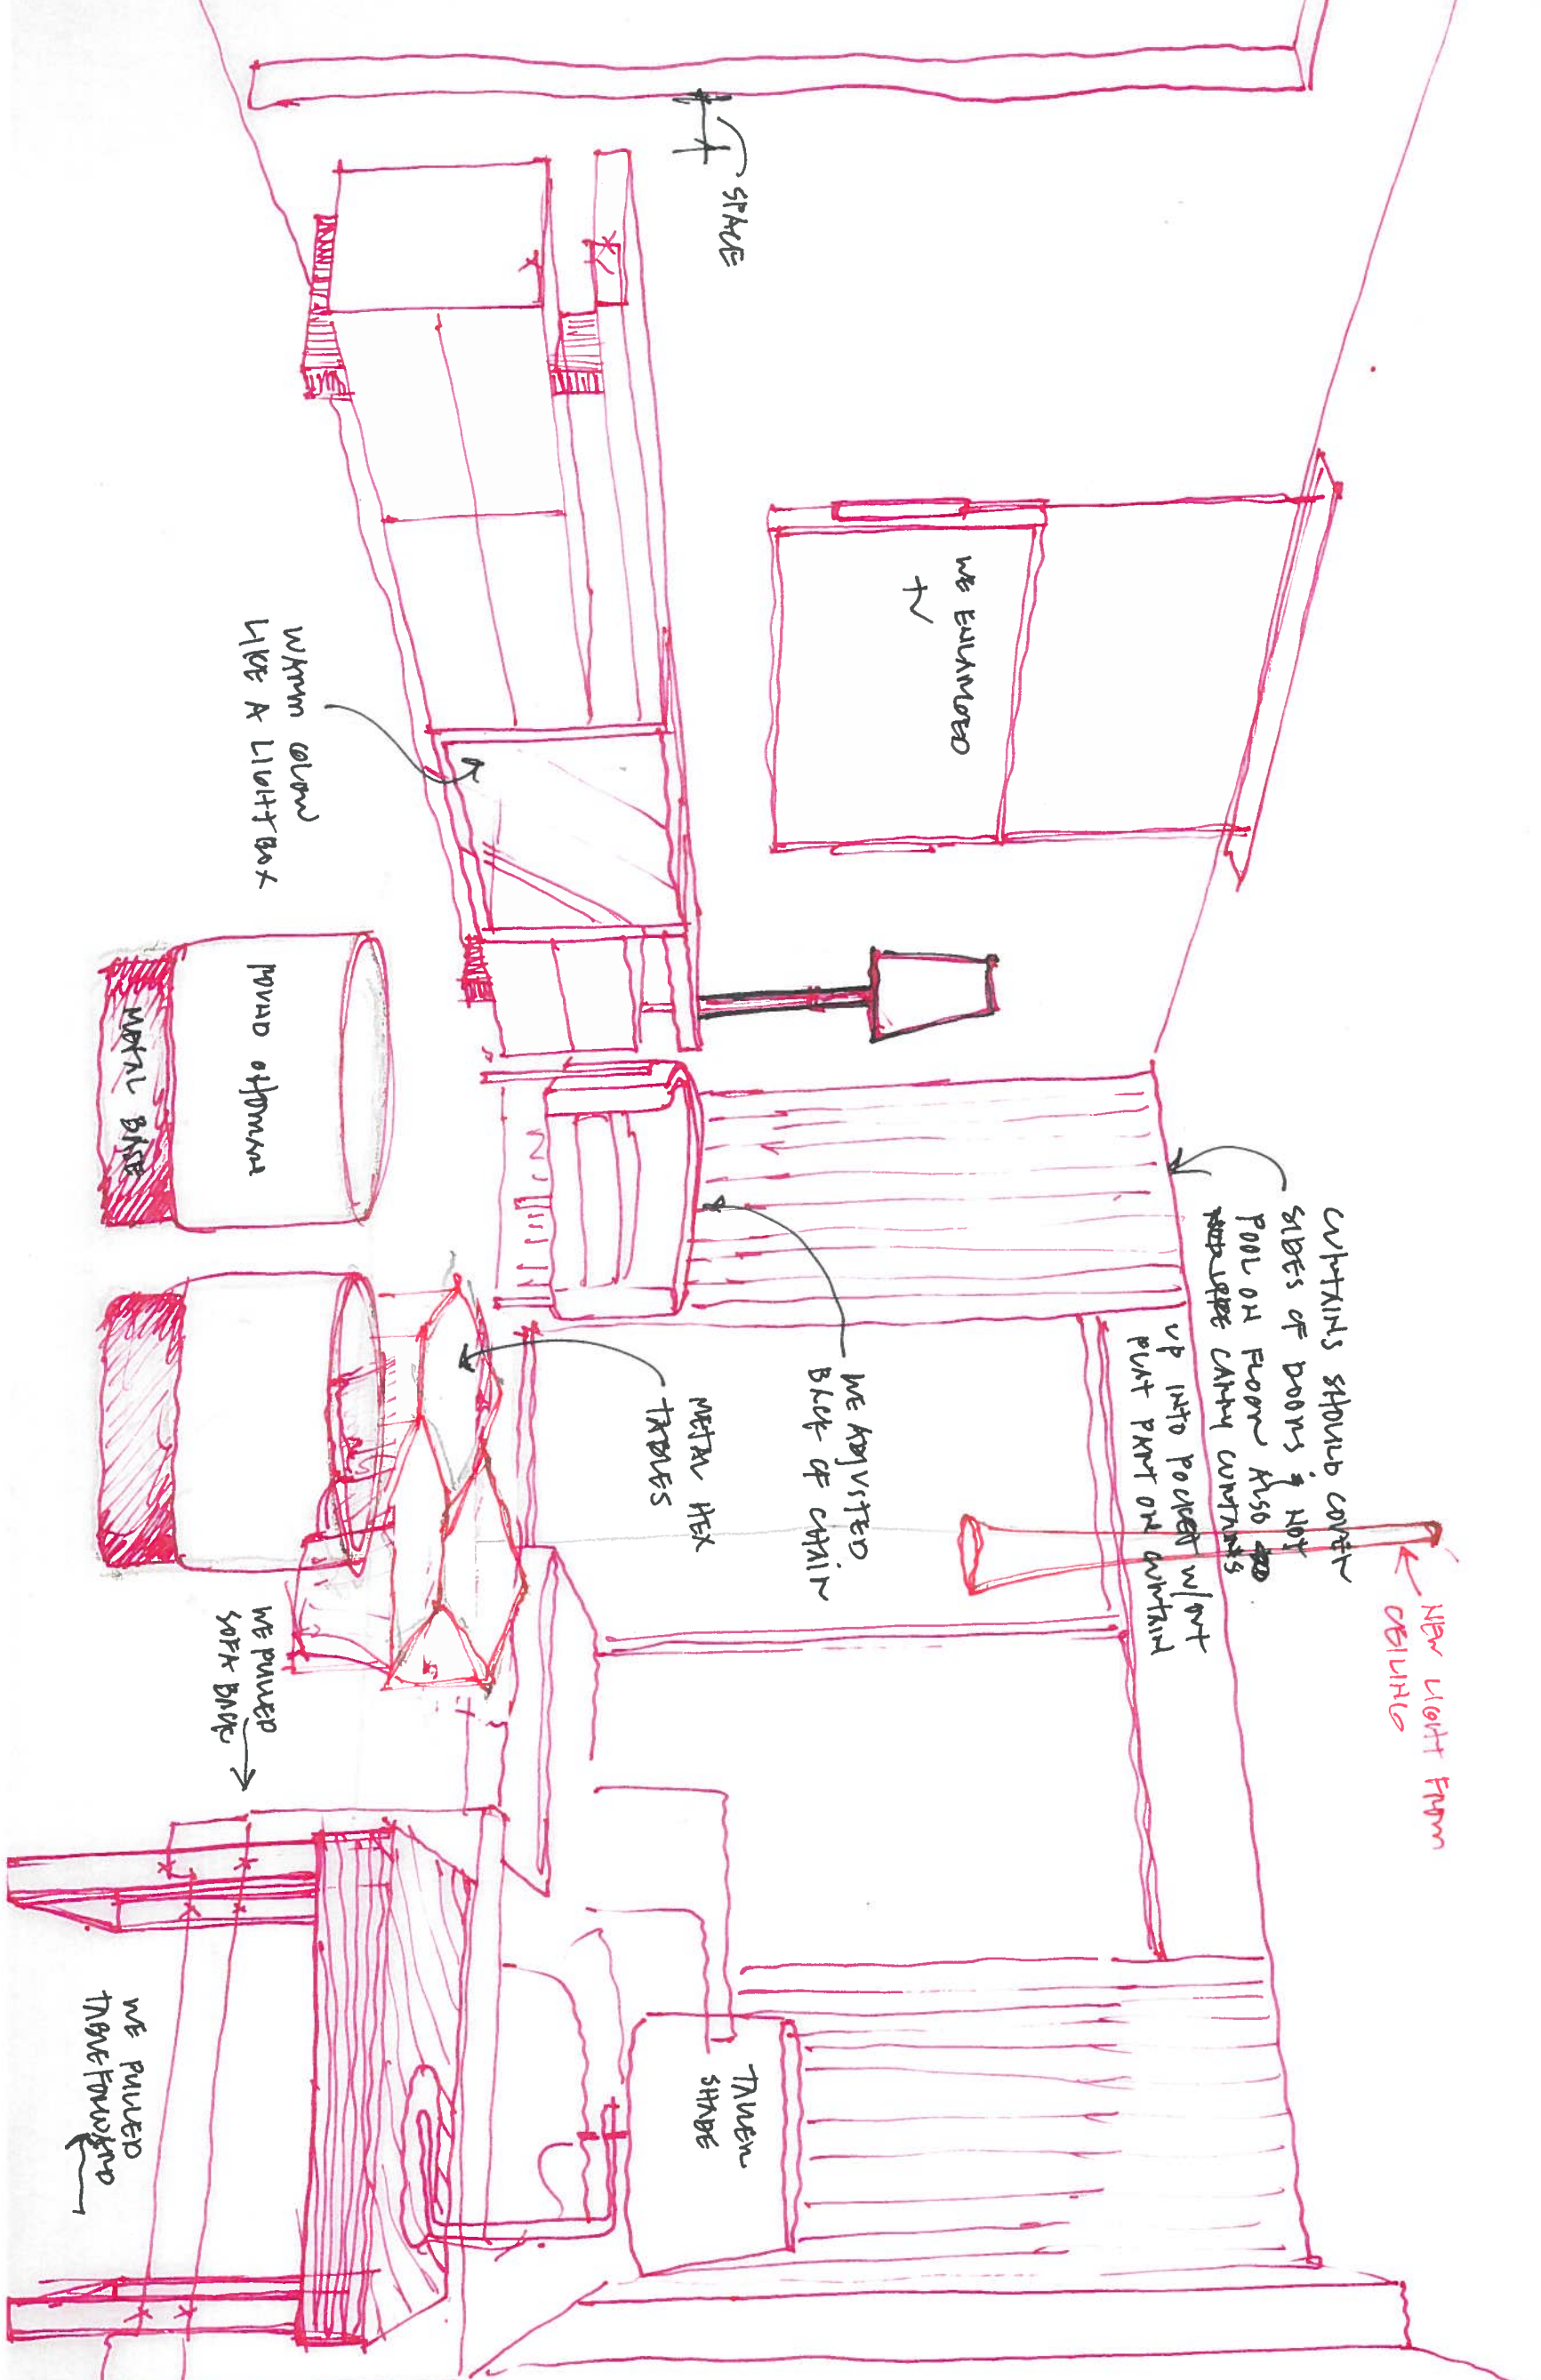 SPACE
WE ENLARGED
TV
WARM GLOW
LIKE A LIGHTBOX
ROUND OTTOMAN
METAL BASE
CURTAINS SHOULD COVER
SIDES OF DOORS & NOT
POOL ON FLOOR ALSO
CARRY CURTAINS
UP INTO POCKET W/OUT
PLAT PART ON CURTAIN
NEW LIGHT FROM
CEILING
WE ADJUSTED
BACK OF CHAIR
METAL HEX
TABLES
WE PULLED
SOFA BACK
TALLER
SHADE
WE PULLED
TABLE FORWARD